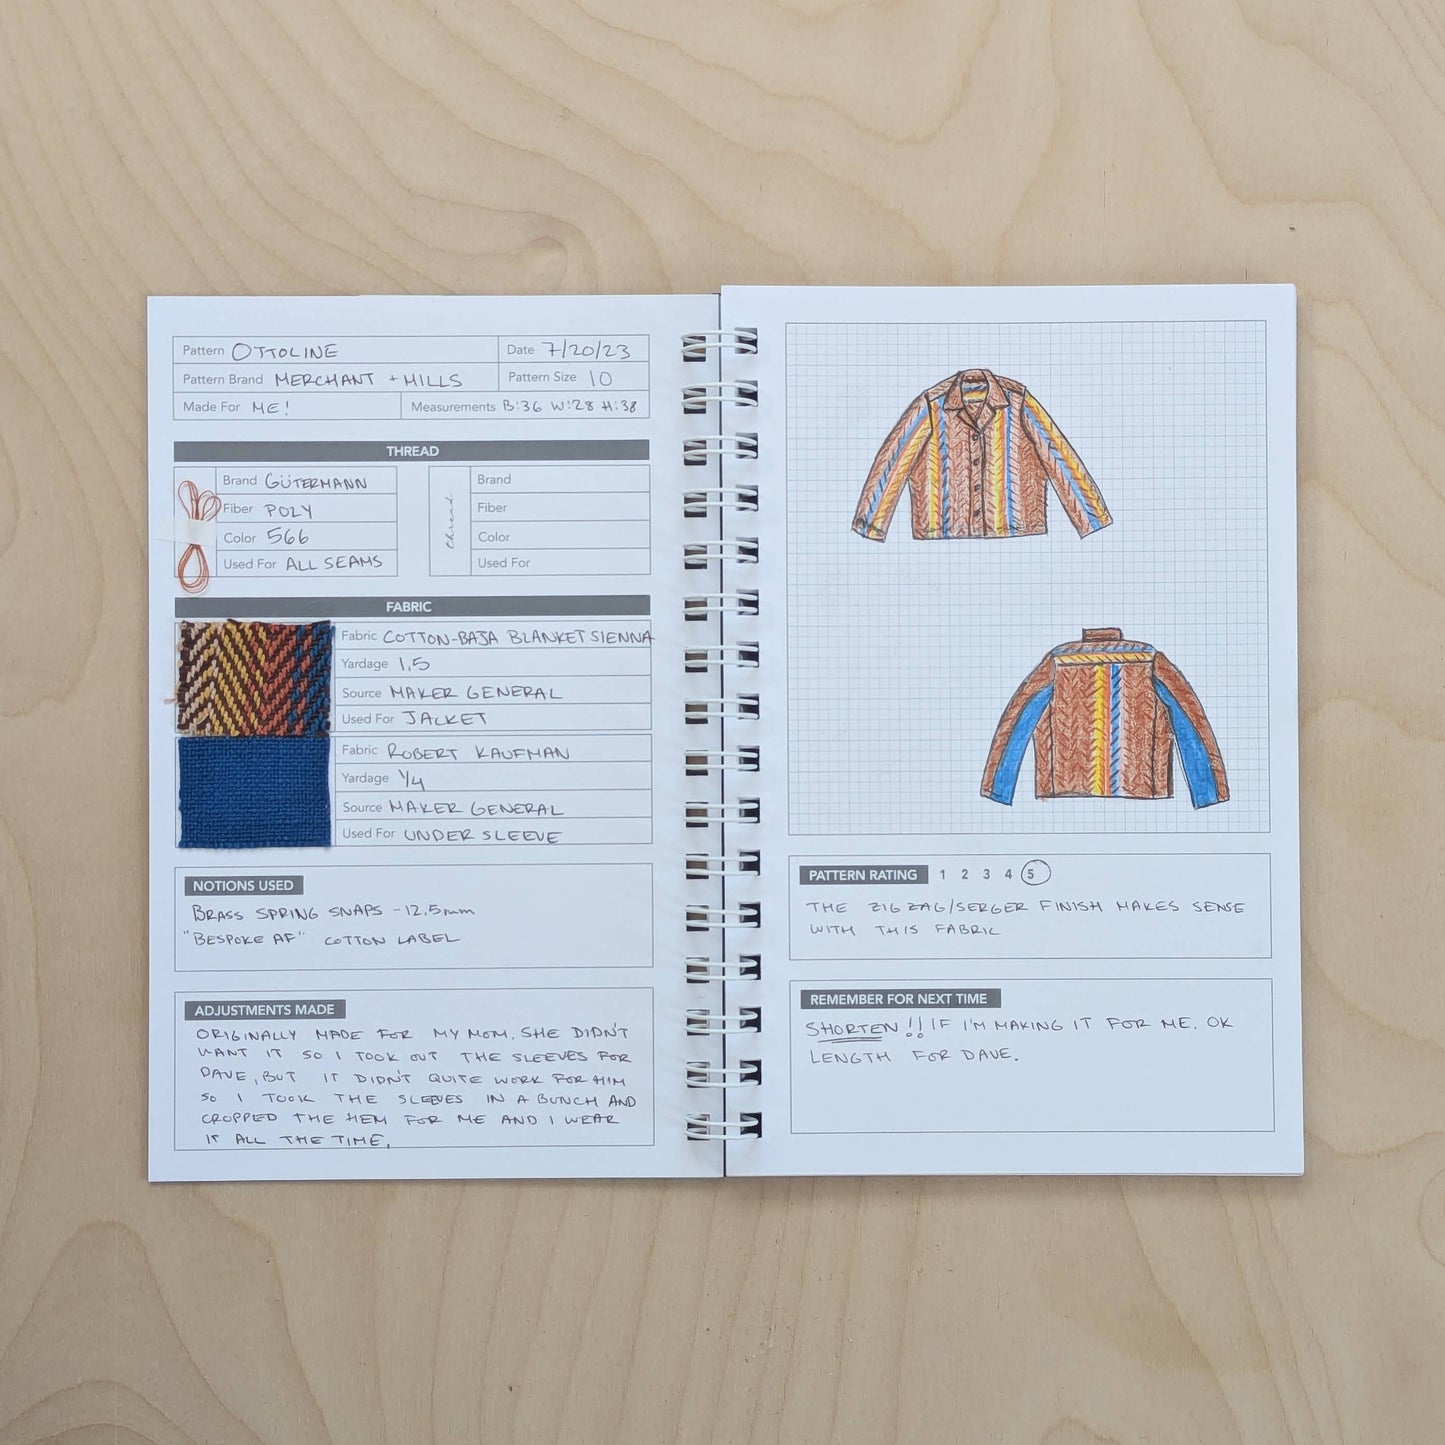 Pattern OTTOLINE Date 7/20/23
Pattern Brand MERCHANT + MILLS Pattern Size 10
Made For ME! Measurements B:36 W:28 H:38
THREAD
Brand GÜTERMANN
Fiber POLY
Color 566
Used For ALL SEAMS
thread
Brand
Fiber
Color
Used For
FABRIC
Fabric COTTON-BAJA BLANKET SIENNA
Yardage 1.5
Source MAKER GENERAL
Used For JACKET
Fabric ROBERT KAUFMAN
Yardage 1/4
Source MAKER GENERAL
Used For UNDER SLEEVE
NOTIONS USED
BRASS SPRING SNAPS - 12.5mm
"BESPOKE AF" COTTON LABEL
ADJUSTMENTS MADE
ORIGINALLY MADE FOR MY MOM. SHE DIDN'T
WANT IT SO I TOOK OUT THE SLEEVES FOR
DAVE, BUT IT DIDN'T QUITE WORK FOR HIM
SO I TOOK THE SLEEVES IN A BUNCH AND
CROPPED THE HEM FOR ME AND I WEAR
IT ALL THE TIME.
PATTERN RATING 1 2 3 4 5
THE ZIGZAG/SERGER FINISH MAKES SENSE
WITH THIS FABRIC
REMEMBER FOR NEXT TIME
SHORTEN!! IF I'M MAKING IT FOR ME. OK
LENGTH FOR DAVE.